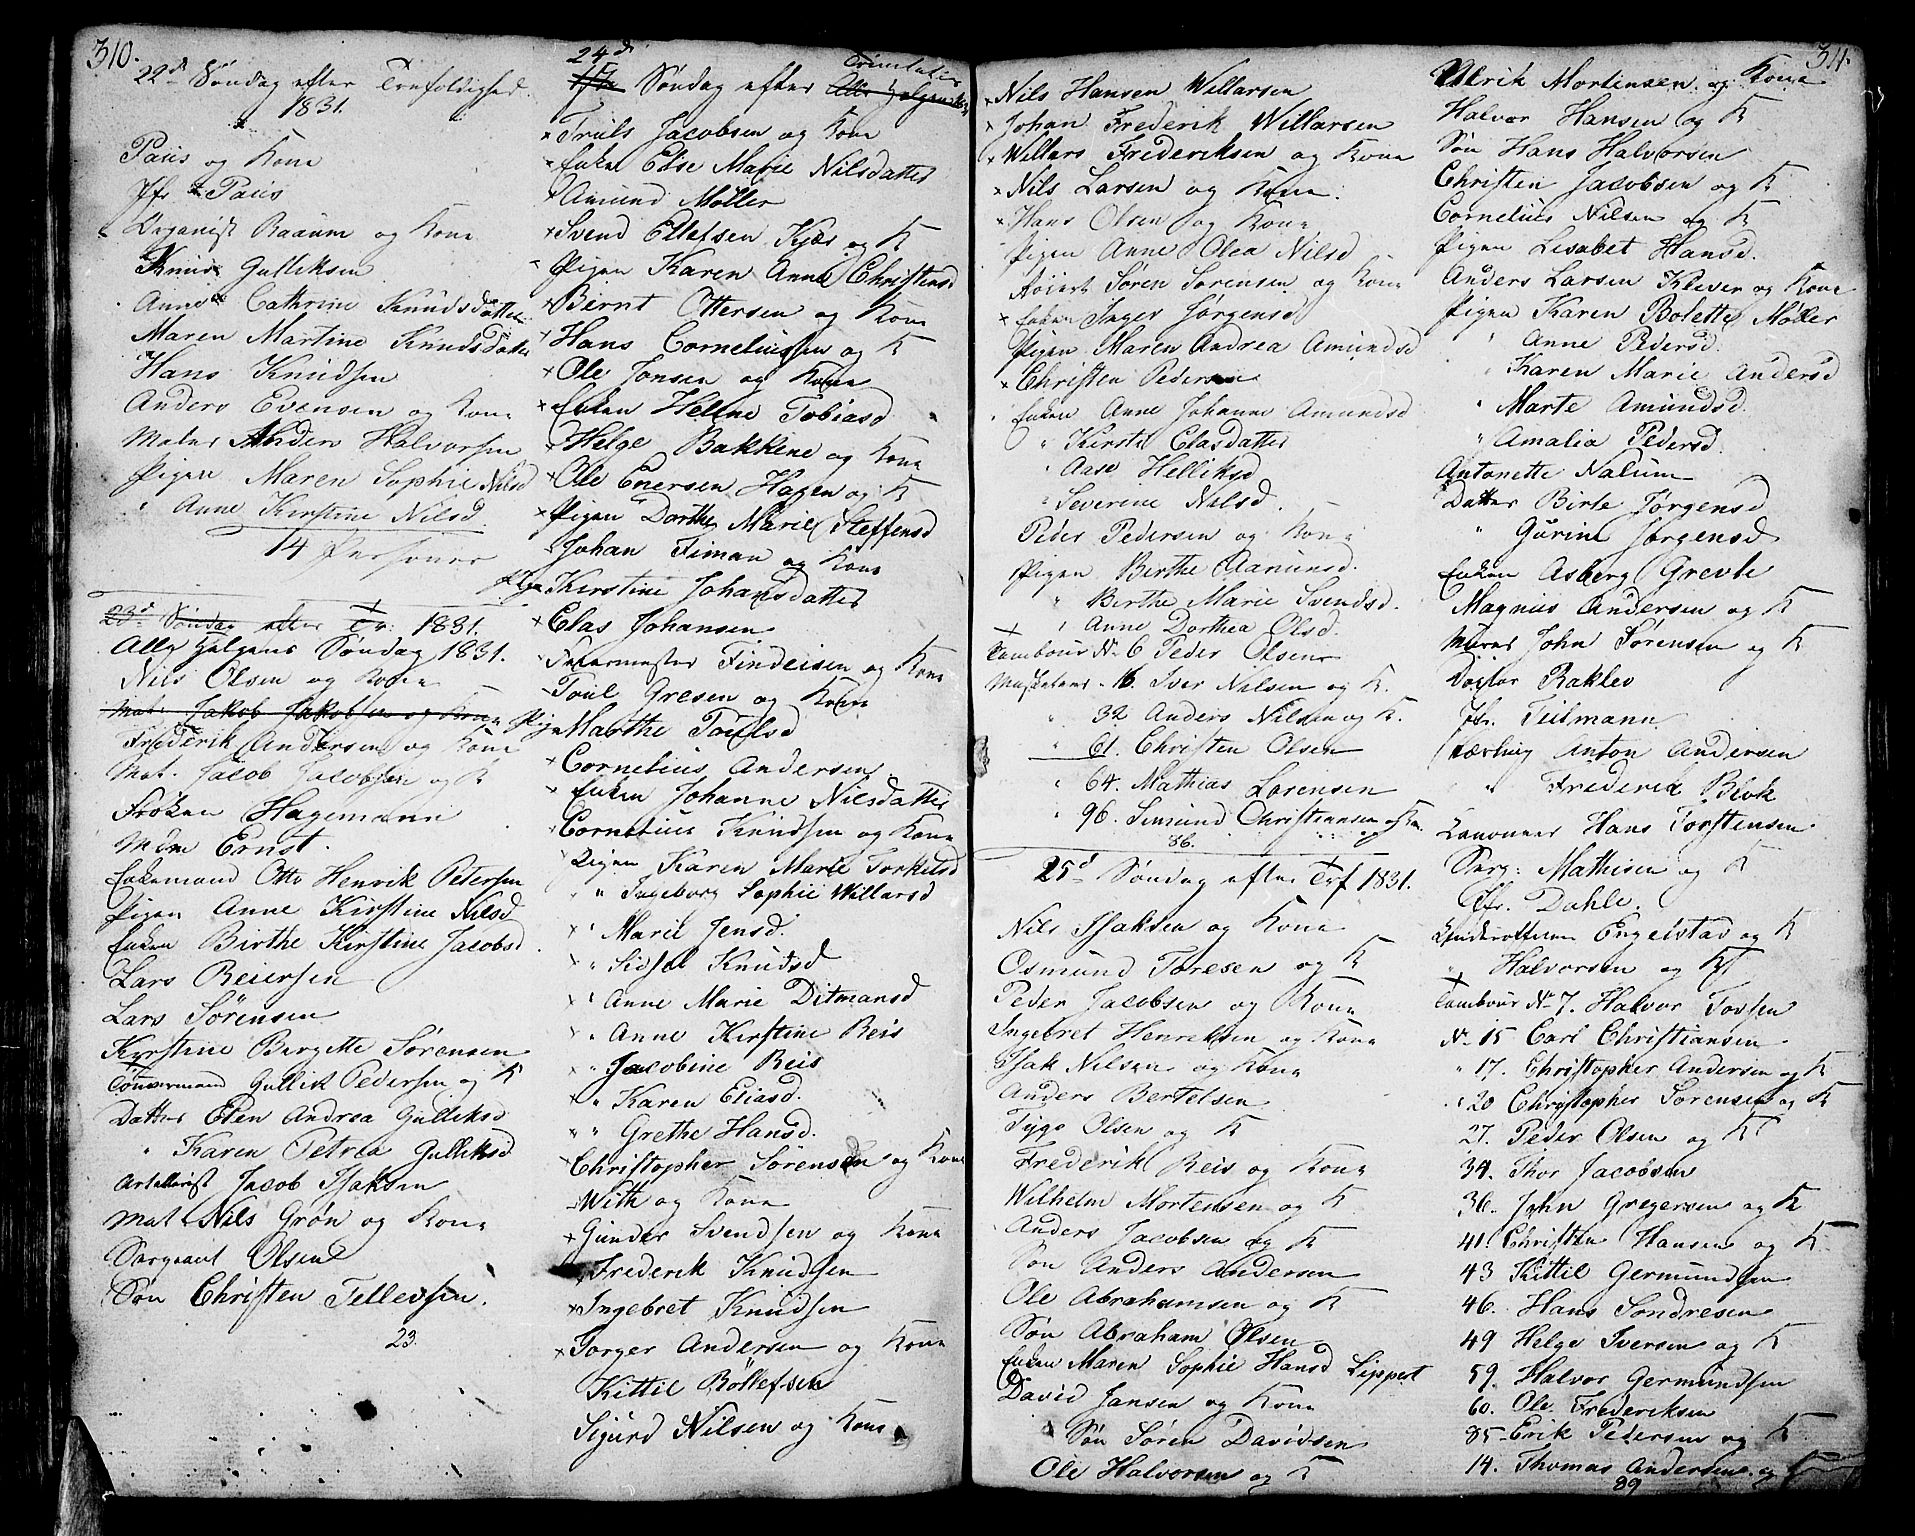 310.
22d Søndag efter Trefoldighed.
1831.
Paus og Kone
Jfr Paus
Organist Raaum og Kone
Knud Gulliksen
Anne Cathrine Knudsdatter
Maren Martine Knudsdatter
Hans Knudsen
Anders Evensen og Kone
Matr Anders Halvorsen
Pigen Maren Sophie Nilsd
" Anne Kirstine Nilsd.
14 Personer
23d Søndag efter Tr: 1831.
Alle Helgens Søndag 1831.
Nils Olsen og Kone
Mat. Jakob Jakobsen og Kone
Frederik Andersen og Kone
Mat. Jacob Jacobsen og K
Frøken Hagemann
Mdm Ernst.
Enkemand Otto Henrik Petersen
Pigen Anne Kirstine Nilsd
Enken Birthe Kirstine Jacobsd.
Lars Reiersen
Lars Sørensen
Kyrstine Birgitte Sørensen
Tømmermand Gullik Pedersen og K
Datter Elen Andrea Gulliksd
" Karen Petrea Gulliksd
Artellerist Jacob Isaksen
Mat Nils Grøn og Kone
Sergeant Olsen
Søn Christen Tellefsen.
23.
24d
Søndag efter Alle Helgensdag Trinitatis
× Truls Jacobsen og Kone
× Enken Else Marie Nilsdatter
× Amund Møller
× Svend Ellefsen Kjær og K
Pigen Karen Anne Christensd
× Bernt Ottersen og Kone
× Hans Corneliussen og K
× Ole Jonsen og Kone
× Enken Helene Tobiasd
× Helge Bakkene og Kone
× Ole Enersen Hagen og K
× Pigen Dorthe Marie Steffensd
× Johan Timan og Kone
Pigen Kirstine Johansdatter
× Clas Johansen
× Findeisen og Kone
Toul Gresen og Kone
Pign Marthe Toulsd
× Cornelius Andersen
× Enken Johanne Nilsdatter
× Cornelius Knudsen og Kone
Pigen Karen Marie Torkelsd
× " Ingeborg Sophie Willarsd
× " Marie Jensd.
× " Sidsel Knudsd
× " Anne Marie Ditmansd
× " Anne Kirstine Reis
× " Jacobine Reis
× " Karen Eliasd.
" " Grethe Hansd.
× Christopher Sørensen og Kone
With og Kone
× Gunder Svendsen og Kone
Frederik Knudsen
× Ingebret Knudsen
× Jørger Andersen og Kone
Kittil Rollefsen
Sigurd Nilsen og Kone
311.
× Nils Hansen Willarsen
× Johan Frederik Willarsen
× Willars Frederiksen og Kone
× Nils Larsen og Kone.
× Hans Olsen og Kone
Pigen Anne Olea Nilsd
Søren Sørensen og Kone
× Enken Inger Jørgensd
Pigen Maren Andrea Amundsd
× Christen Pedersen
Enken Anne Johanne Amundsd
" Kirsti Clasdatter
" Aase Helliksd
" Severine Nilsd.
Peder Pedersen og Kone
Pigen Birthe Aamunsd.
" Birthe Marie Svendsd.
" Anne Dorthea Olsd.
Tambour No 6 Peder Olsen
Musketeer - 16. Iver Nilsen og K.
" 32 Anders Nilsen og K.
" 61. Christen Olsen
" 64. Mathias Lorensen
" 96. Simund Christiansen og Kone
86.
25d Søndag efter Trf 1831.
Nils Isaksen og Kone
Osmund Toresen og K
Peder Jacobsen og Kone
Ingebret Henriksen og Kone
Isak Nilsen og Kone
Anders Bertelsen
Tygo Olsen og K
Frederik Reis og Kone
Wilhelm Mortensen og K
Anders Jacobsen og K
Søn Anders Andersen
Ole Abrahamsen og K
Søn Abraham Olsen
Enken Maren Sophie Hansd Lippet
David Jansen og Kone
Søn Søren Davidsen
Ole Halvorsen og K
Ulrik Mortensen og Kone
Halvor Hansen og K
Søn Hans Halvorsen
Christen Jacobsen og K
Cornelius Nilsen og K
Pigen Lisabet Hansd.
Anders Larsen Klever og Kone
Pigen Karen Bolette Møller
" Anne Pedersd.
" Karen Marie Andersd
" Marte Amundsd.
" Amalia Pedersd.
Antonette Nalum
Datter Birte Jørgensd
" Gurine Jørgensd
Enken Asberg Grevle
Magnus Andersen og K
Murer John Sørensen og K
Doctor Bakkev
Jfr. Teilmann
Lærling Anton Andersen
" Frederik Birk
Canonneer Hans Torstensen
Serg: Mathisen og K
Jfr. Dahle.
Underofficeer Engelstad og K
" Halvorsen og K
Tambour No 7. Halvor Torsen
No 15 Carl Christiansen
" 17. Christopher Andersen og K
" 20 Christopher Sørensen og K
27. Peder Olsen og K
34. Thor Jacobsen
36. John Gregersen og K
41. Christen Hansen og K
43 Kittil Germundsen
46. Hans Sondresen
49 Helge Iversen og K
59. Halvor Germundsen
60. Ole Frederiksen
85- Erik Pedersen og K
14. Thomas Andersen og K
89